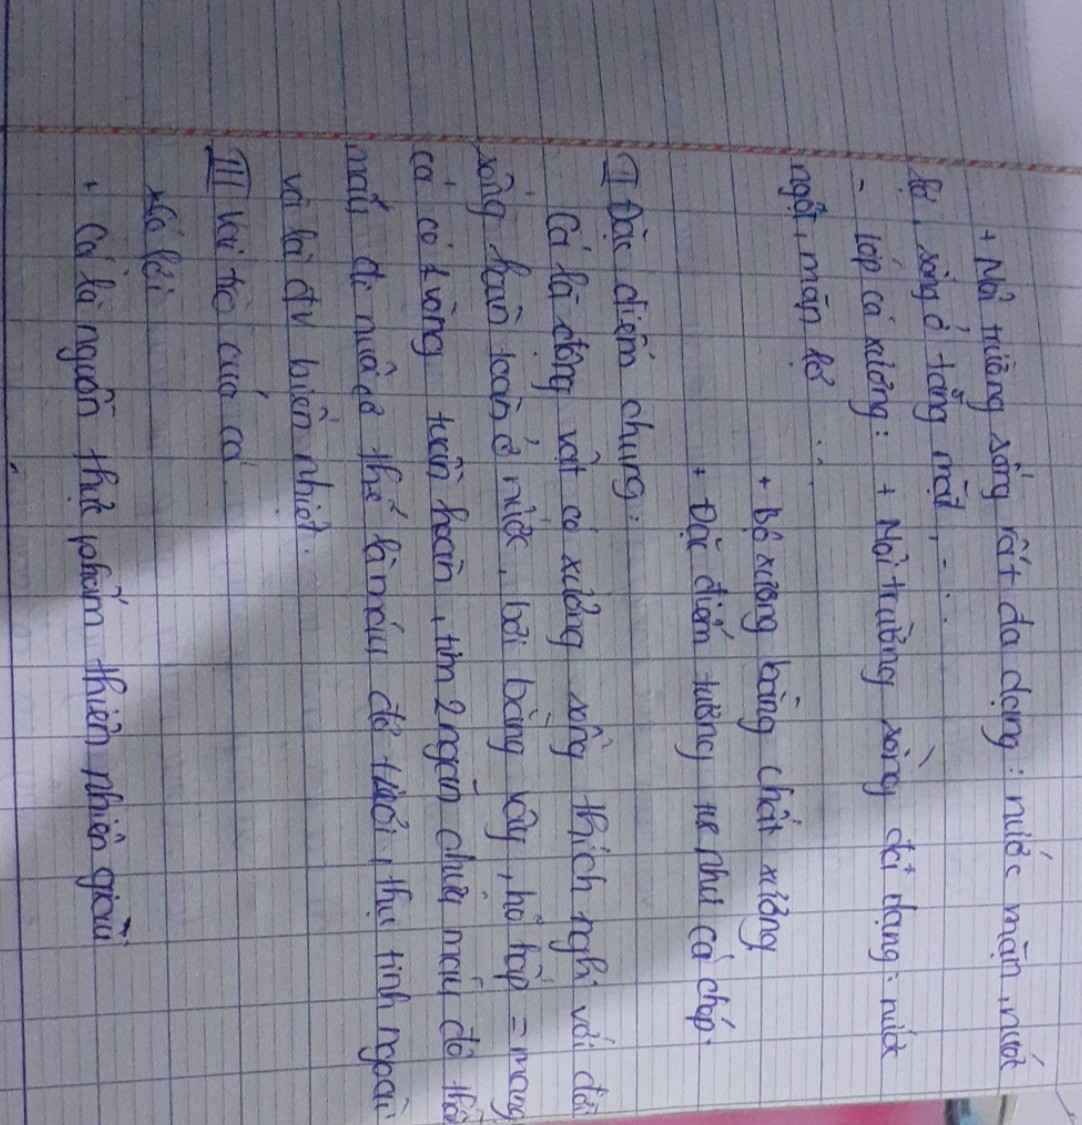 + Môi trường sống rất đa dạng: nước mặn, nước
lợ, sống ở tầng mặt, ...
- Lớp cá xương: + Môi trường sống đa dạng: nước
ngọt, mặn lợ ...
+ Bộ xương bằng chất xương
+ Đặc điểm tương tự như cá chép.
II Đặc điểm chung:
Cá là động vật có xương sống thích nghi với đời
sống hoàn toàn ở nước, bơi bằng vây, hô hấp = mang
cá có 1 vòng tuần hoàn, tim 2 ngăn chứa máu đỏ thẫm
máu đi nuôi cơ thể là máu đỏ tươi, thụ tinh ngoài
và là đv biến nhiệt.
III Vai trò của cá
+ Cá là nguồn thực phẩm thiên nhiên giàu